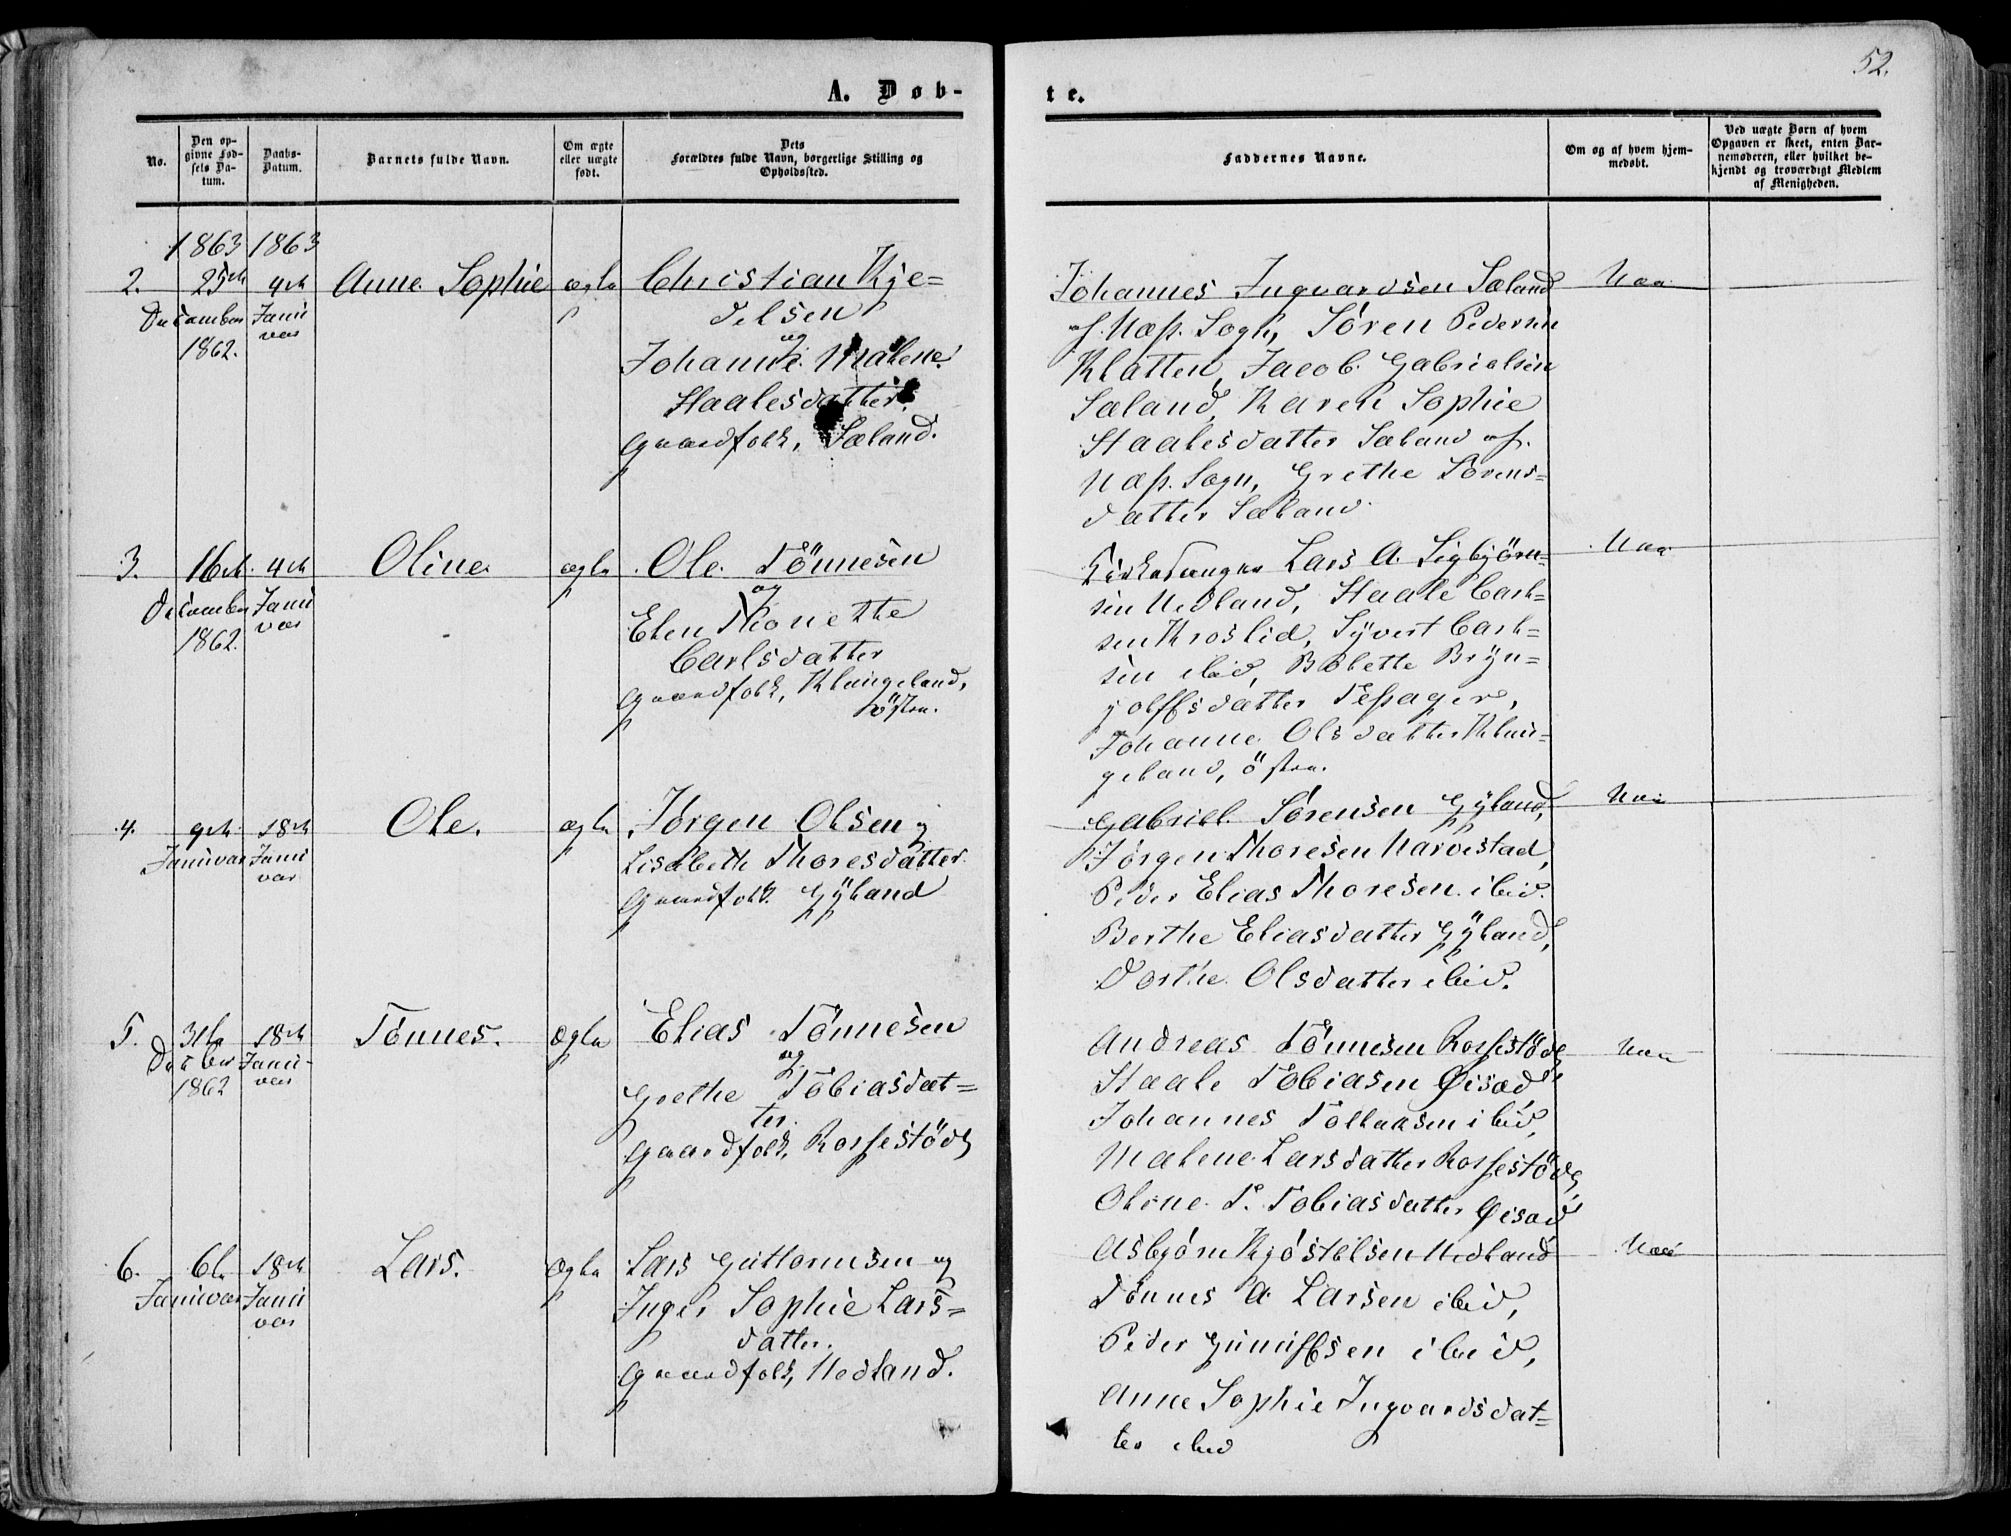 52.
A. Døb-
te.
No.
Den op-
givne Fød-
sels Da-
tum.
Daabs-
Datum.
Barnets fulde Navn.
Om ægte
eller uægte
født.
Dets
Forældres fulde Navn, borgerlige Stilling og
Opholdssted.
Faddernes Navne.
Om og af hvem hjem-
medøbt.
Ved uægte Børn af hvem
Opgaven er skeet, enten Bar-
nemoderen, eller hvilket be-
kjendt og troværdigt Medlem
af Menigheden.
1863 1863
2.
25de
December
1862.
4de
Janu
var
Anne Sophie
ægte
Christian Kje=
delsen
og
Johanne Malene
Staalesdatter,
Gaardfolk, Sæland.
Johannes Ingvardsen Sæland
af Næss Sogn, Sören Pedersen
Klatten, Jacob Gabrielsen
Sæland, Karen Sophie
Staalesdatter Sæland af
Næss Sogn, Grethe Sörens=
datter Sæland.
Nei
3.
16de
December
1862.
4de
Janu
var
Oline
ægte
Ole Tönnesen
og
Elen Thonette
Carlsdatter
Gaardfolk, Klungeland,
östre.
Kirkesanger Lars A. Sigbjörn=
sen Nedland, Staale Carl=
sen Kroslid, Syvert Carl=
sen ibid, Bolette Bryn=
jolffsdatter Tessager,
Johanne Olsdatter Klun=
geland, östre.
Nei
4.
9de
Januvar
18de
Janu
var
Ole.
ægte
Jörgen Olsen og
Lisabeth Thoresdatter
Gaardfolk Gyland
Gabriel Sörensen Gyland,
Jörgen Thoresen Narvestad,
Peder Elias Thoresen ibid.
Berthe Eliasdatter Gyland,
Dorthe Olsdatter ibid.
Nei
5.
31te
Decber
1862
18de
Janu-
var
Tönnes.
Ægte
Elias Tönnesen
og
Grethe Tobiasdat=
ter.
Gaardfolk, Rossestöde
Andreas Tönnesen Rossestöde
Staale Tobiasen Øisæd
Johannes Tollaksen ibid,
Malene Larsdatter Rossestöde,
Oline T. Tobiasdatter Øisæd
Nei
6.
6te
Januvar
18de
Janu
var
Lars.
Ægte
Lars Guttormsen og
Inger Sophie Lars=
datter.
Gaardfolk, Nedland.
Asbjörn Kjöstelsen Nedland
Tönnes A. Larsen ibid,
Peder Gunulfsen ibid,
Anne Sophie Ingvardsdat=
ter ibid
Nei